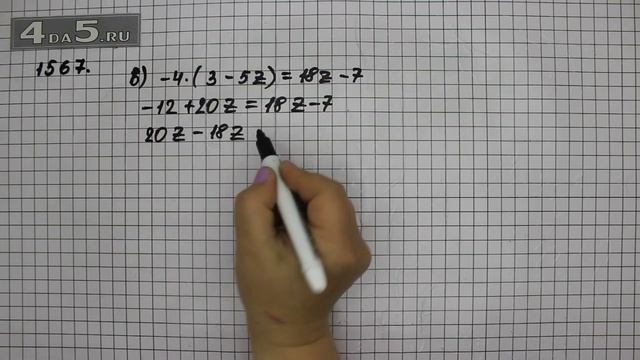 4DA5.RU
1567.
в) -4·(3-5z)=18z-7
-12+20z=18z-7
20z-18z